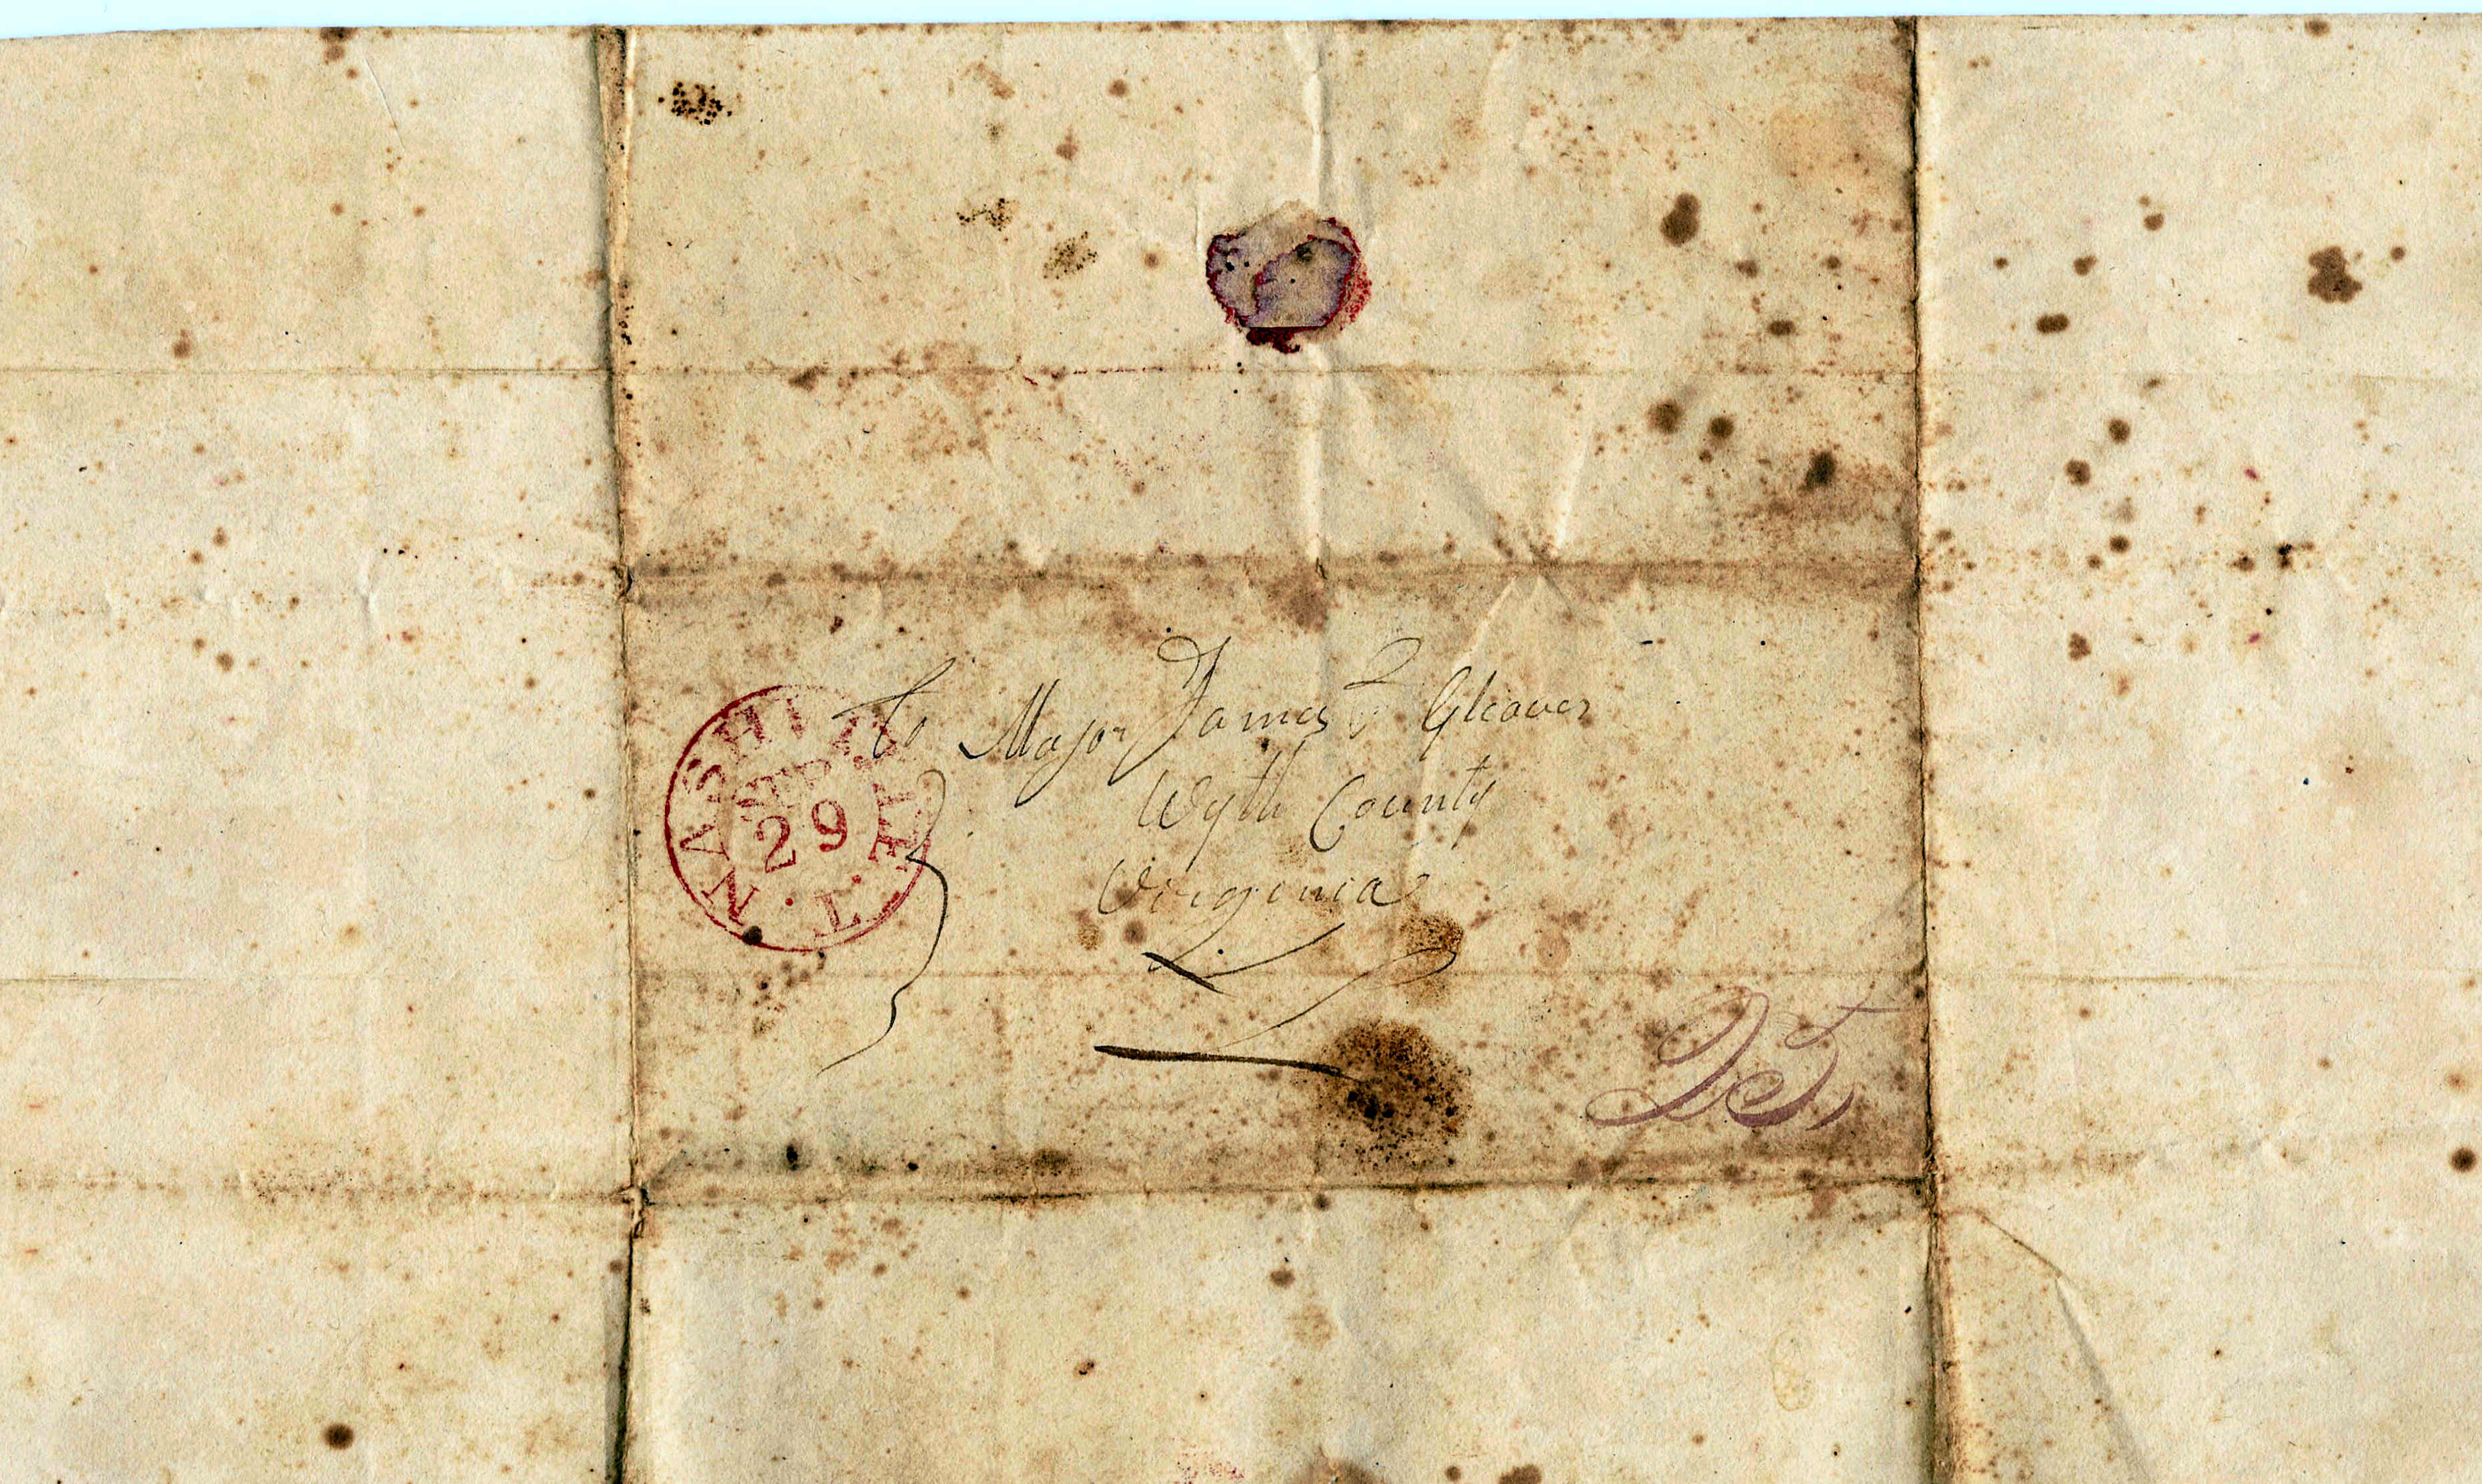 To Major James T Gleaves
Wyth County
Virginia
NASHVILLE · T.
SEP
29
25